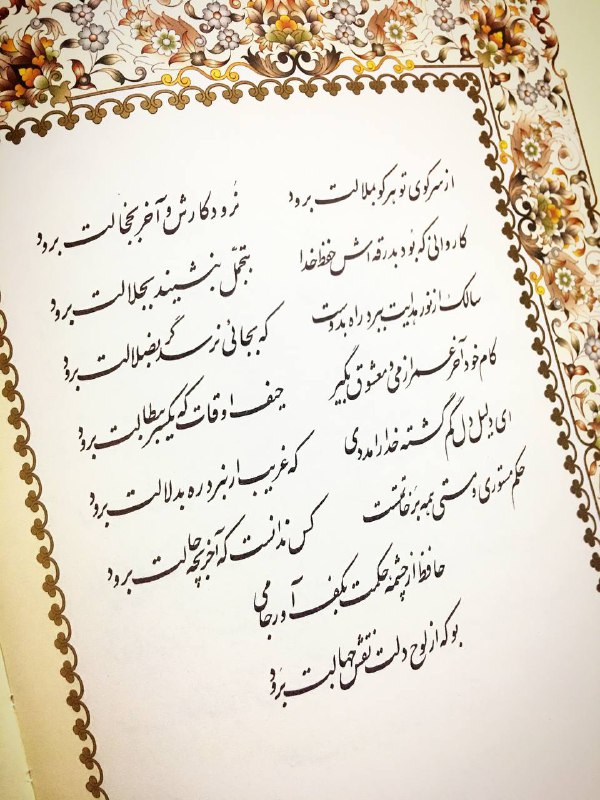 از سر کوی تو هر کو بملالت برود نرود کارش و آخر بخجالت برود
کاروانی که بود بدرقه اش حفظ خدا بتجمّل بنشیند بجلالت برود
سالک از نور هدایت ببرد راه بدوست که بجائی نرسد گر بضلالت برود
کام خود آخر عمر از می و معشوق بگیر حیف اوقات که یکسر ببطالت برود
ای دلیل دل گم گشته خدا را مددی که غریب ار نبرد ره بدلالت برود
حکم مستوری و مستی همه بر خاتمتست کس ندانست که آخر بچه حالت برود
حافظ از چشمه حکمت بکف آور جامی
بو که از لوح دلت نقش جهالت برود